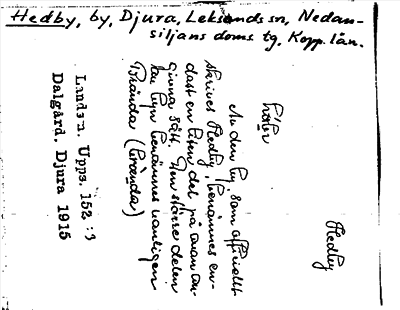 Hedby, by, Djura, Leksands sn, Nedan-
siljans doms tg, Kopp. län.
Hedby
Av den by, som officiellt
skrives Hedby, benämnes en-
dast en liten del på ovan an-
givna sätt. Den större delen
av byn benämnes vanligen
Brända
Landsm. Upps. 152:3
Dalgård. Djura 1915